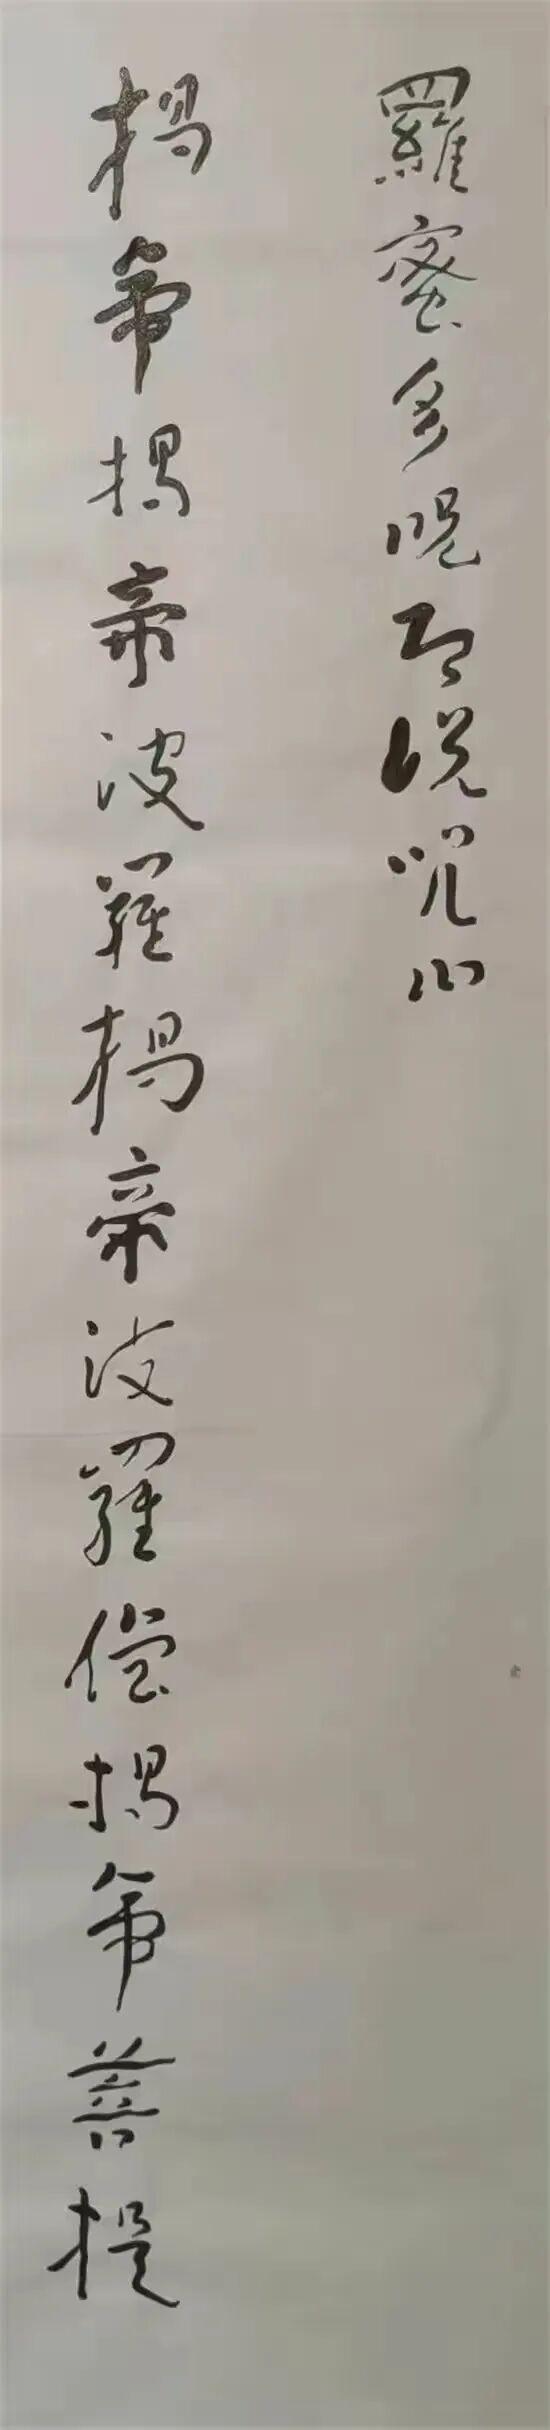 羅蜜多呪即說咒曰
揭帝揭帝波羅揭帝波羅僧揭帝菩提